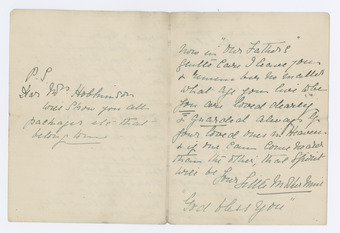 P.S
Mrs Hobbinson
will show you all
packages etc that
belong
Now in "Our Father's"
gentle care I leave you
& remember no matter
what age you live to be
you are loved dearly
& guarded always by
your loved ones in Heaven
& if one can come nearer
than the other, that spirit
will be your Little Mother Mine
"God bless You"